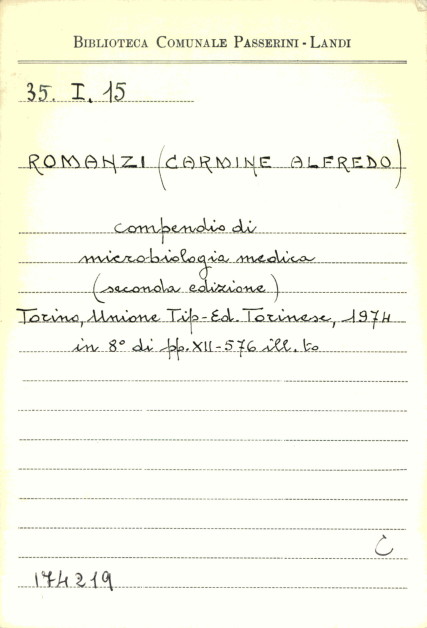 BIBLIOTECA COMUNALE PASSERINI - LANDI
35. I. 15
ROMANZI (CARMINE ALFREDO)
compendio di
microbiologia medica
(seconda edizione)
Torino, Unione Tip-Ed. Torinese, 1974
in 8° di pp. XII-576 ill. to
C
174219